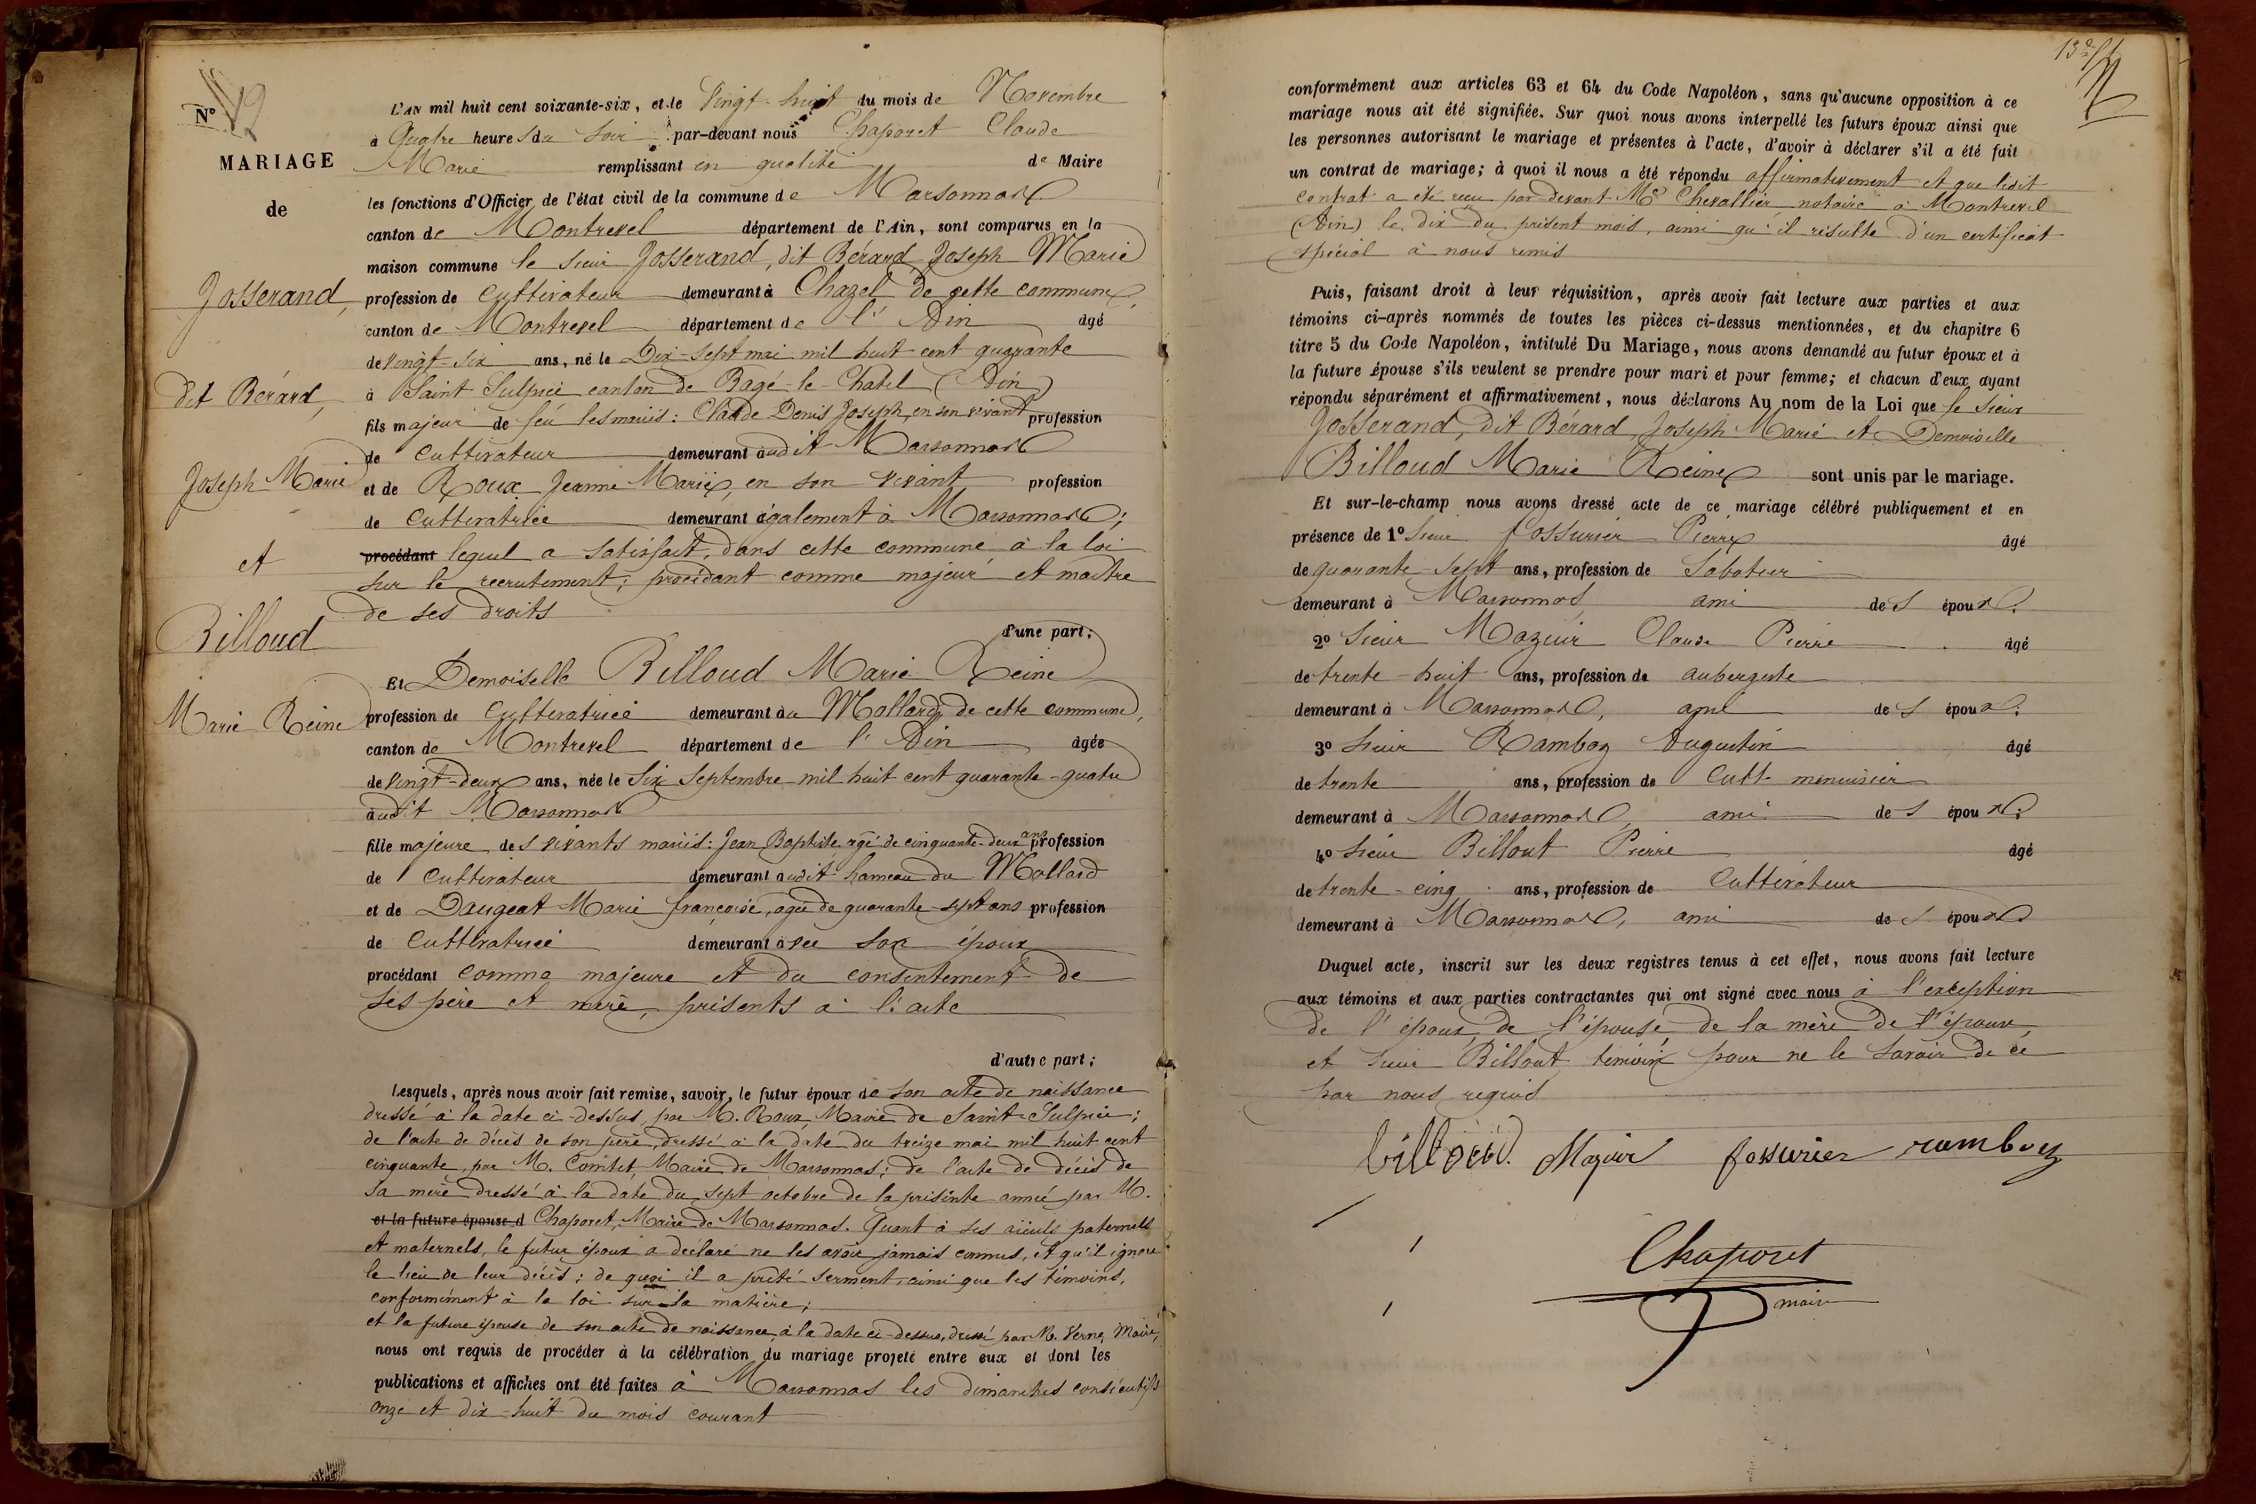 N° 12
MARIAGE
de
Josserand,
dit Bérard,
Joseph Marie
et
Billoud
Marie Reine
L'AN mil huit cent soixante-six, et le Vingt-huit du mois de Novembre
à Quatre heures du soir par-devant nous Chaporet Claude
Marie remplissant en qualité de Maire
les fonctions d'Officier de l'état civil de la commune de Marsonnas
canton de Montrevel département de l'Ain, sont comparus en la
maison commune le sieur Josserand, dit Bérard Joseph Marie
profession de Cultivateur demeurant à Chazel de cette commune,
canton de Montrevel département de l'Ain agé
de vingt-six ans, né le Dix-sept mai mil huit cent quarante
à Saint Sulpice canton de Bagé-le-Chatel (Ain)
fils majeur de feu les mariés : Claude Denis Joseph, en son vivant profession
de Cultivateur demeurant audit Marsonnas
et de Roux Jeanne Marie, en son vivant profession
de Cultivatrice demeurant également à Marsonnas;
procédant lequel a satisfait, dans cette commune à la loi
sur le recrutement; procédant comme majeur et maître
de ses droits
d'une part;
Et Demoiselle Billoud Marie Reine
profession de Cultivatrice demeurant au Mollard de cette commune,
canton de Montrevel département de l'Ain agée
de vingt-deux ans, née le Six Septembre mil huit cent quarante-quatre
audit Marsonnas
fille majeure des vivants mariés : Jean Baptiste agé de cinquante-deux ans profession
de Cultivateur demeurant audit hameau du Mollard
et de Daugeat Marie françoise, agée de quarante-sept ans profession
de Cultivatrice demeurant avec son époux
procédant comme majeure et du consentement de
ses père et mère, présents à l'acte
d'autre part;
Lesquels, après nous avoir fait remise, savoir, le futur époux de son acte de naissance
dressé à la date ci-dessus, par M. Roux, Maire de Saint-Sulpice;
de l'acte de décès de son père, dressé à la date du treize mai mil huit cent
cinquante, par M. Comtet, Maire de Marsonnas; de l'acte de décès de
sa mère dressé à la date du sept octobre de la présente année par M.
et la future épouse d Chaporet, Maire de Marsonnas. Quant à ses aïeuls paternels
et maternels, le futur époux a déclaré ne les avoir jamais connus, et qu'il ignore
le lieu de leur décès; de quoi il a prêté serment, ainsi que les témoins,
conformément à la loi sur la matière;
et la future épouse de son acte de naissance, à la date ci-dessus, dressé par M. Verne, Maire,
nous ont requis de procéder à la célébration du mariage projeté entre eux et dont les
publications et affiches ont été faites à Marsonnas les dimanches consécutifs
onze et dix-huit du mois courant
conformément aux articles 63 et 64 du Code Napoléon, sans qu'aucune opposition à ce
mariage nous ait été signifiée. Sur quoi nous avons interpellé les futurs époux ainsi que
les personnes autorisant le mariage et présentes à l'acte, d'avoir à déclarer s'il a été fait
un contrat de mariage; à quoi il nous a été répondu affirmativement et que ledit
contrat a été reçu par devant Me Chevallier notaire à Montrevel
(Ain) le dix du présent mois, ainsi qu'il résulte d'un certificat
spécial à nous remis
Puis, faisant droit à leur réquisition, après avoir fait lecture aux parties et aux
témoins ci-après nommés de toutes les pièces ci-dessus mentionnées, et du chapitre 6
titre 5 du Code Napoléon, intitulé Du Mariage, nous avons demandé au futur époux et à
la future épouse s'ils veulent se prendre pour mari et pour femme; et chacun d'eux ayant
répondu séparément et affirmativement, nous déclarons Au nom de la Loi que le Sieur
Josserand, dit Bérard, Joseph Marie et Demoiselle
Billoud Marie Reine sont unis par le mariage.
Et sur-le-champ nous avons dressé acte de ce mariage célébré publiquement et en
présence de 1° Sieur fossurier Pierre agé
de quarante-sept ans, profession de Saboteur
demeurant à Marsonnas, ami des époux;
2° Sieur Mazuir Claude Pierre agé
de trente-huit ans, profession de aubergiste
demeurant à Marsonnas, ami des époux;
3° Sieur Ramboz Augustin agé
de trente ans, profession de Cult-menuisier
demeurant à Marsonnas, ami des époux;
4° Sieur Billout Pierre agé
de trente-cinq ans, profession de Cultivateur
demeurant à Marsonnas, ami des époux
Duquel acte, inscrit sur les deux registres tenus à cet effet, nous avons fait lecture
aux témoins et aux parties contractantes qui ont signé avec nous à l'exception
de l'époux, de l'épouse, de la mère de l'épouse,
et sieur Billout témoin pour ne le savoir de ce
par nous requis
billoud. Mazuir fossurier ramboz
Chaporet
maire